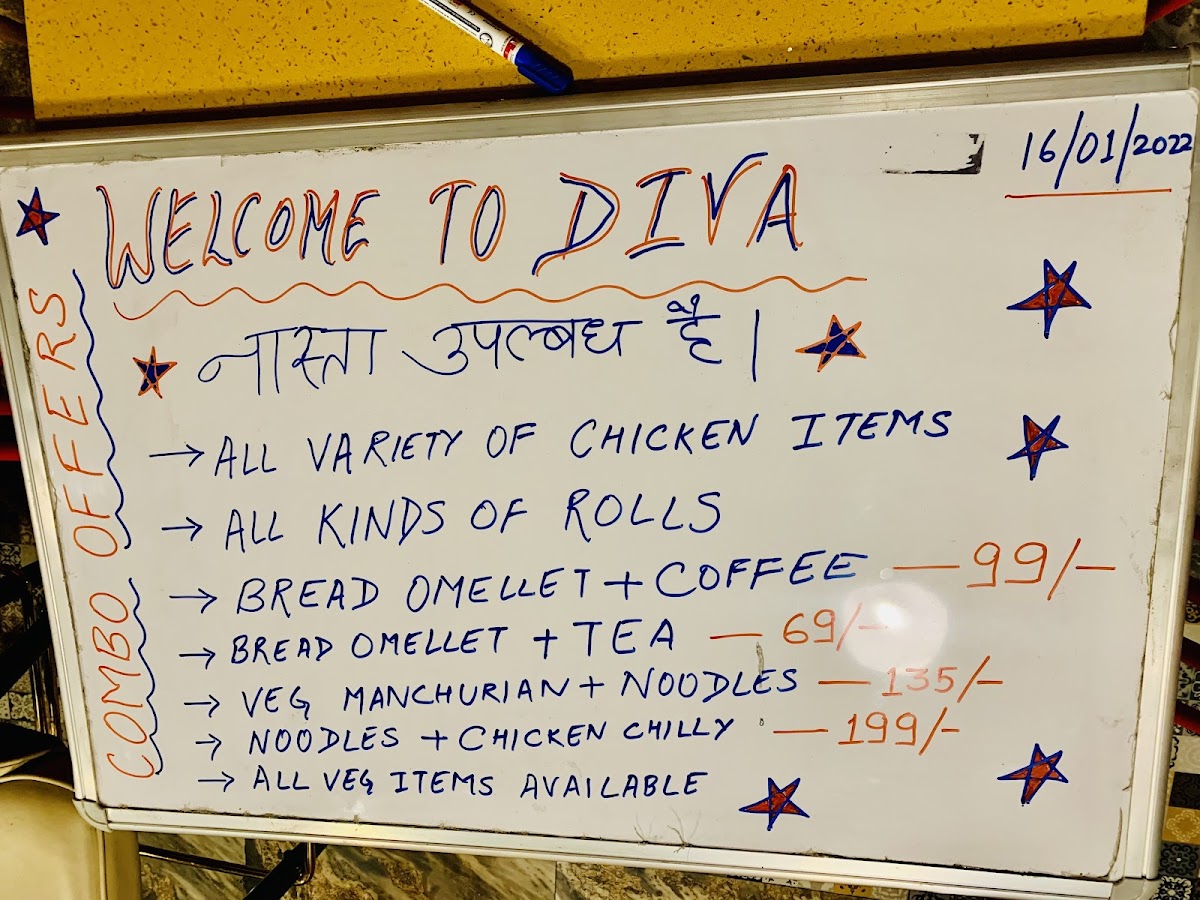 16/01/2022
WELCOME TO DIVA
नास्ता उपल्बध है।
COMBO OFFERS
→ ALL VARIETY OF CHICKEN ITEMS
→ ALL KINDS OF ROLLS
→ BREAD OMELLET + COFFEE — 99/-
→ BREAD OMELLET + TEA — 69/-
→ VEG MANCHURIAN + NOODLES — 135/-
→ NOODLES + CHICKEN CHILLY — 199/-
→ ALL VEG ITEMS AVAILABLE